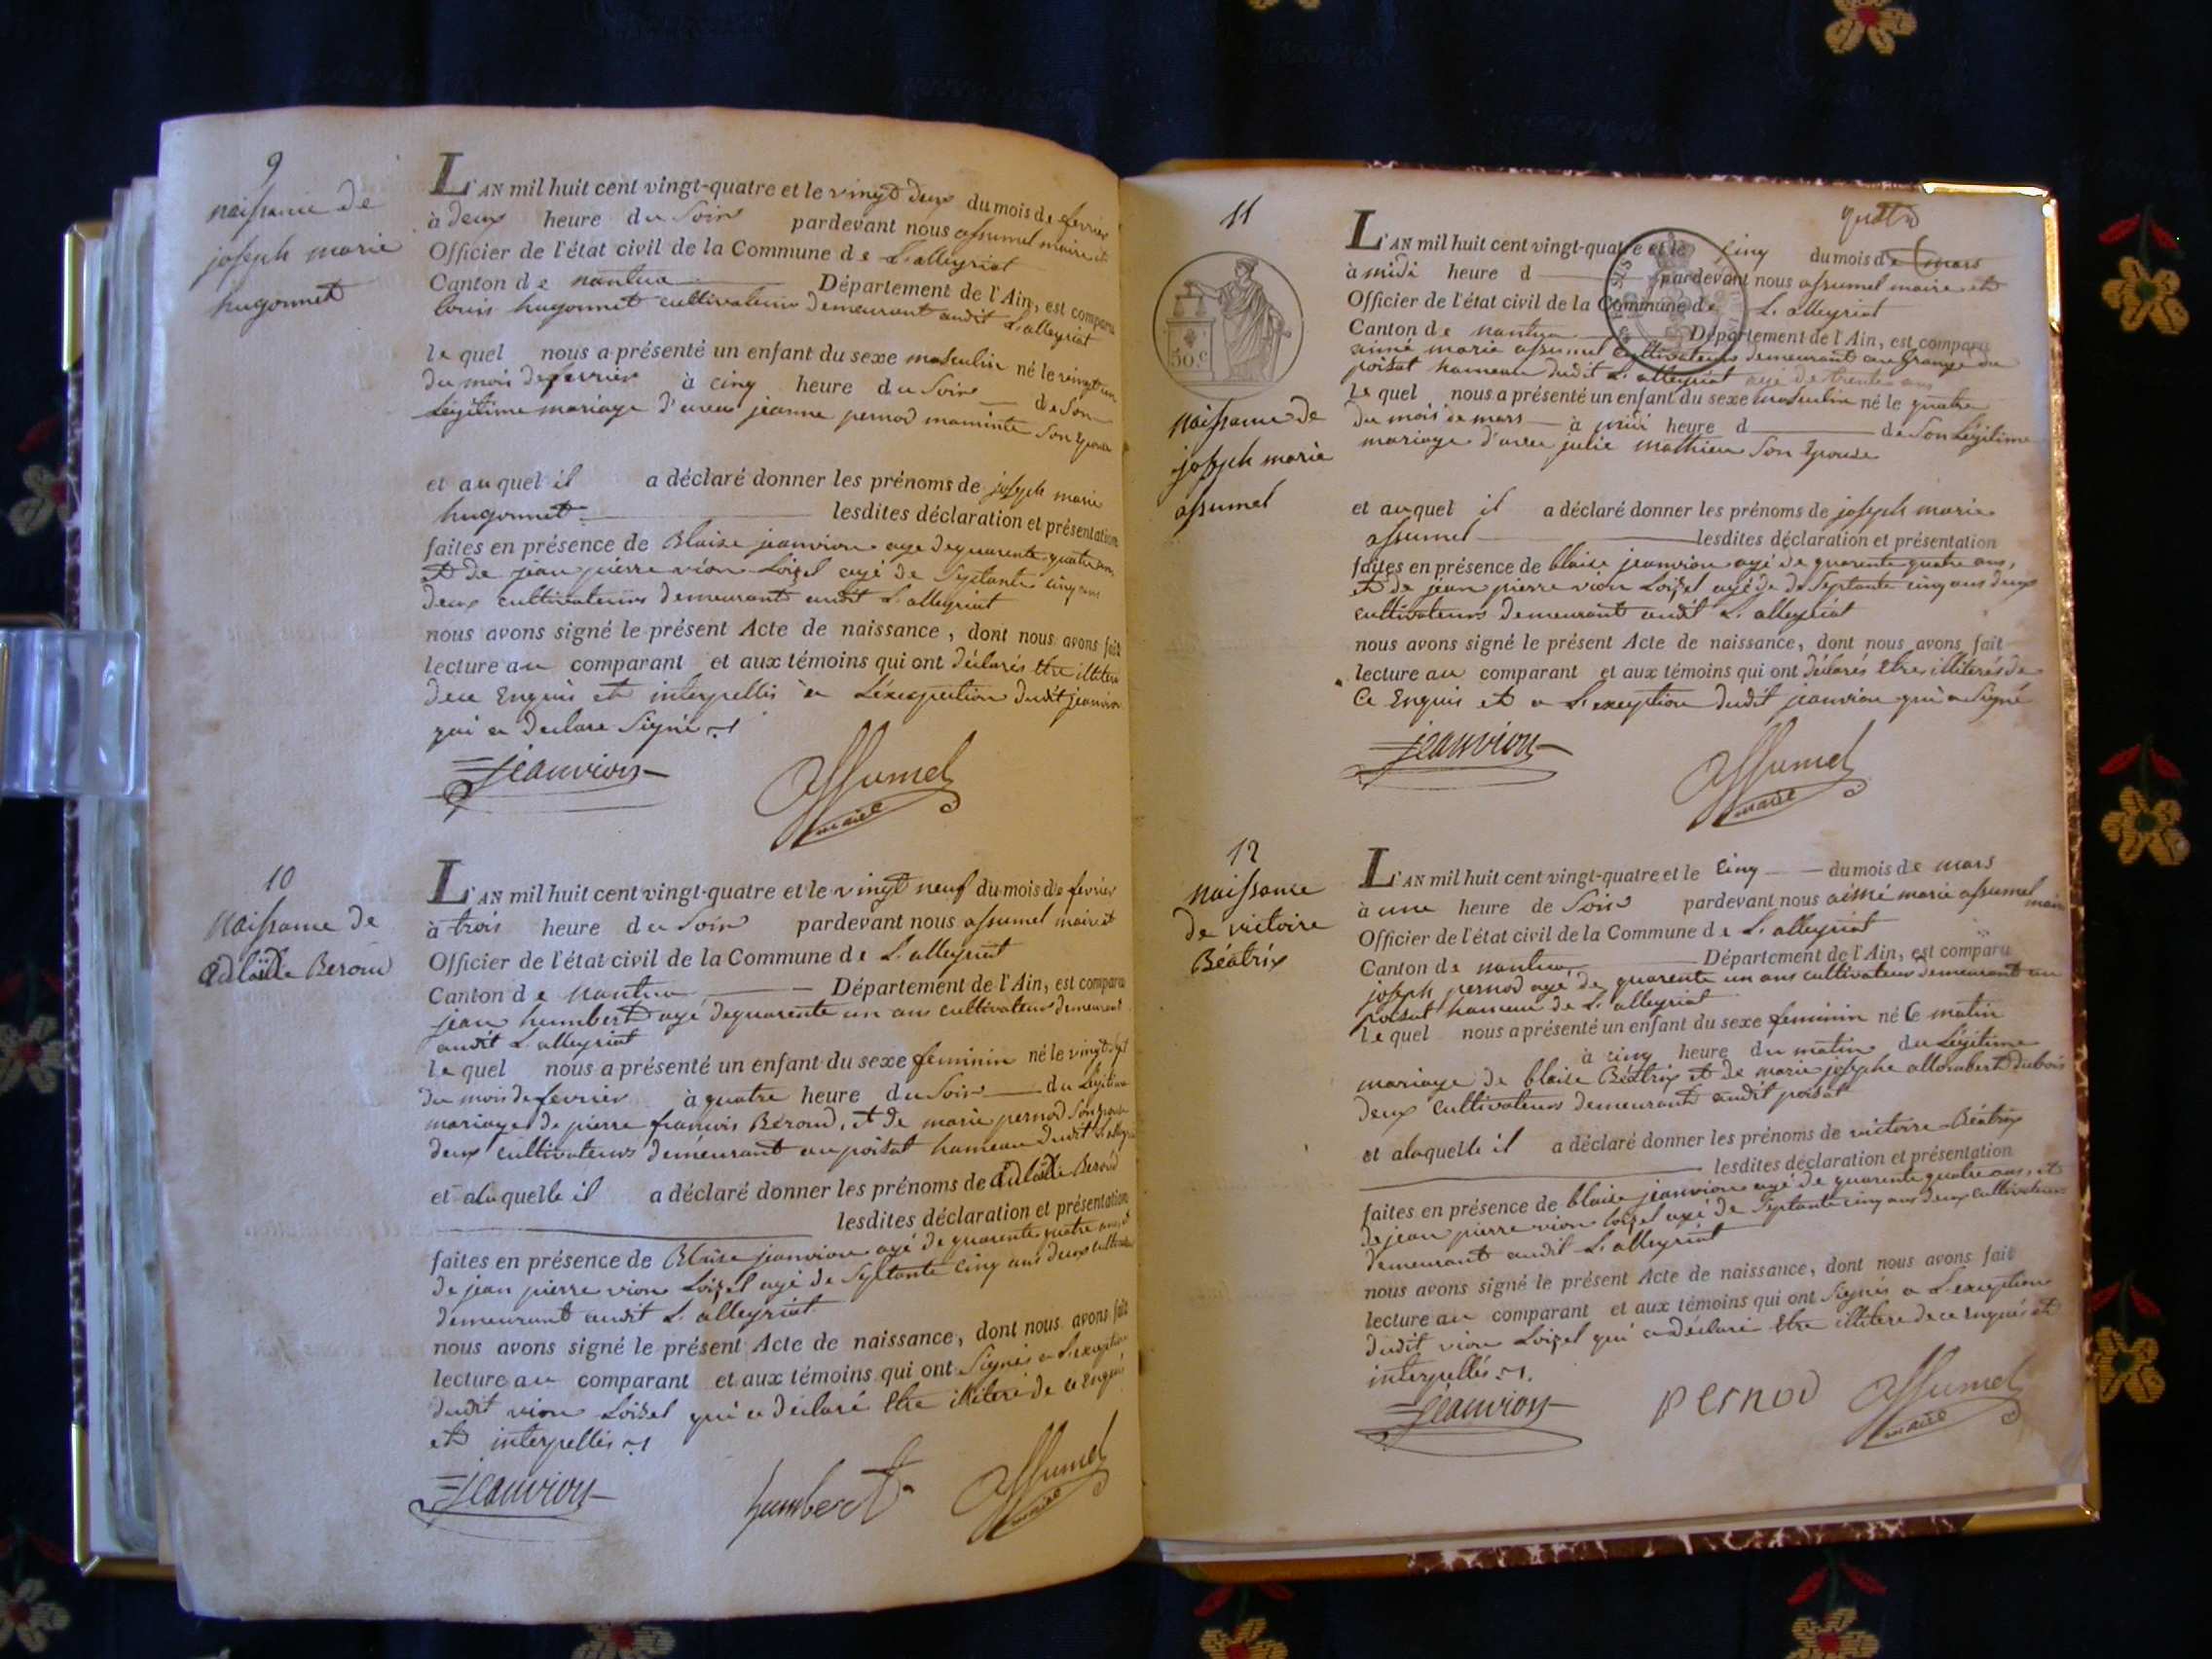 9
naissance de
joseph marie
hugonnet
L'AN mil huit cent vingt-quatre et le vingt deux du mois de fevrier
à deux heure du soir pardevant nous assumel maire et
Officier de l'état civil de la Commune de L'alleyriat
Canton de nantua Département de l'Ain, est comparu
louis hugonnet cultivateur demeurant audit L'alleyriat
lequel nous a présenté un enfant du sexe masculin né le vingt un
du mois de fevrier à cinq heure du soir de son
légitime mariage d'avec jeanne pernod maminte son epouse
et auquel il a déclaré donner les prénoms de joseph marie
hugonnet lesdites déclaration et présentation
faites en présence de Blaise jeanvion agé de quarente quatre ans
et de jean pierre vion Loizel agé de septante cinq ans
deux cultivateurs demeurants audit L'alleyriat
nous avons signé le présent Acte de naissance, dont nous avons fait
lecture au comparant et aux témoins qui ont déclarés être illitere
de ce enquis et interpellis à L'exception dudit jeanvion
qui a declare signé
jeanvion
assumel
maire
10
naissance de
adelaïde Beroud
L'AN mil huit cent vingt-quatre et le vingt neuf du mois de fevrier
à trois heure du soir pardevant nous assumel maire et
Officier de l'état civil de la Commune de L'alleyriat
Canton de nantua Département de l'Ain, est comparu
jean humbert agé de quarente un ans cultivateur demeurant
audit L'alleyriat
lequel nous a présenté un enfant du sexe feminin né le vingt sept
du mois de fevrier à quatre heure du soir du légitime
mariage de pierre francois Béroud, et de marie pernod son epouse
deux cultivateurs demeurant au poisat hameau dudit L'alleyriat
et alaquelle il a déclaré donner les prénoms de adelaïde Beroud
lesdites déclaration et présentation
faites en présence de Blaise jeanvion agé de quarente quatre ans, et
de jean pierre vion Loizel agé de septante cinq ans deux cultivateurs
demeurant audit L'alleyriat
nous avons signé le présent Acte de naissance, dont nous avons fait
lecture au comparant et aux témoins qui ont signés a L'exception
dudit vion Loizel qui a déclaré être illiteré de ce enquis
et interpellés
jeanvion
humbert
assumel
maire
11
30.c
naissance de
joseph marie
assumel
quatre
L'AN mil huit cent vingt-quatre et le cinq du mois de mars
à midi heure d pardevant nous assumel maire et
Officier de l'état civil de la Commune de L'alleyriat
Canton de nantua Département de l'Ain, est comparu
aimé marie assumel cultivateur demeurant au Grange du
poisat hameau dudit L'alleyriat agé de trente ans
lequel nous a présenté un enfant du sexe masculin né le quatre
du mois de mars à midi heure d de son légitime
mariage d'avec julie mathieu son epouse
et auquel il a déclaré donner les prénoms de joseph marie
assumel lesdites déclaration et présentation
faites en présence de blaise jeanvion agé de quarente quatre ans,
et de jean pierre vion Loizel agé de de septante cinq ans deux
cultivateurs demeurant audit L'alleyriat
nous avons signé le présent Acte de naissance, dont nous avons fait
lecture au comparant et aux témoins qui ont déclarés être illiterés de
ce enquis et a L'exeption dudit jeanvion qui a signé
jeanvion
assumel
maire
12
naissance
de victoire
Béatrix
L'AN mil huit cent vingt-quatre et le cinq du mois de mars
à une heure de soir pardevant nous aimé marie assumel maire
Officier de l'état civil de la Commune de L'alleyriat
Canton de nantua Département de l'Ain, est comparu
joseph pernod agé de quarente un ans cultivateur demeurant au
poisat hameau de L'alleyriat
lequel nous a présenté un enfant du sexe feminin né ce matin
à cinq heure du matin du légitime
mariage de blaise Béatrix et de marie josephe allombert dubois
deux cultivateurs demeurants audit poisat
et alaquelle il a déclaré donner les prénoms de victoire Béatrix
lesdites déclaration et présentation
faites en présence de blaise jeanvion agé de quarente quatre ans, et
de jean pierre vion loizel agé de septante cinq ans deux cultivateurs
demeurant audit L'alleyriat
nous avons signé le présent Acte de naissance, dont nous avons fait
lecture au comparant et aux témoins qui ont signés a L'exeption
dudit vion Loizel qui a déclaré être illitere de ce enquis et
interpellés
jeanvion
pernod
assumel
maire